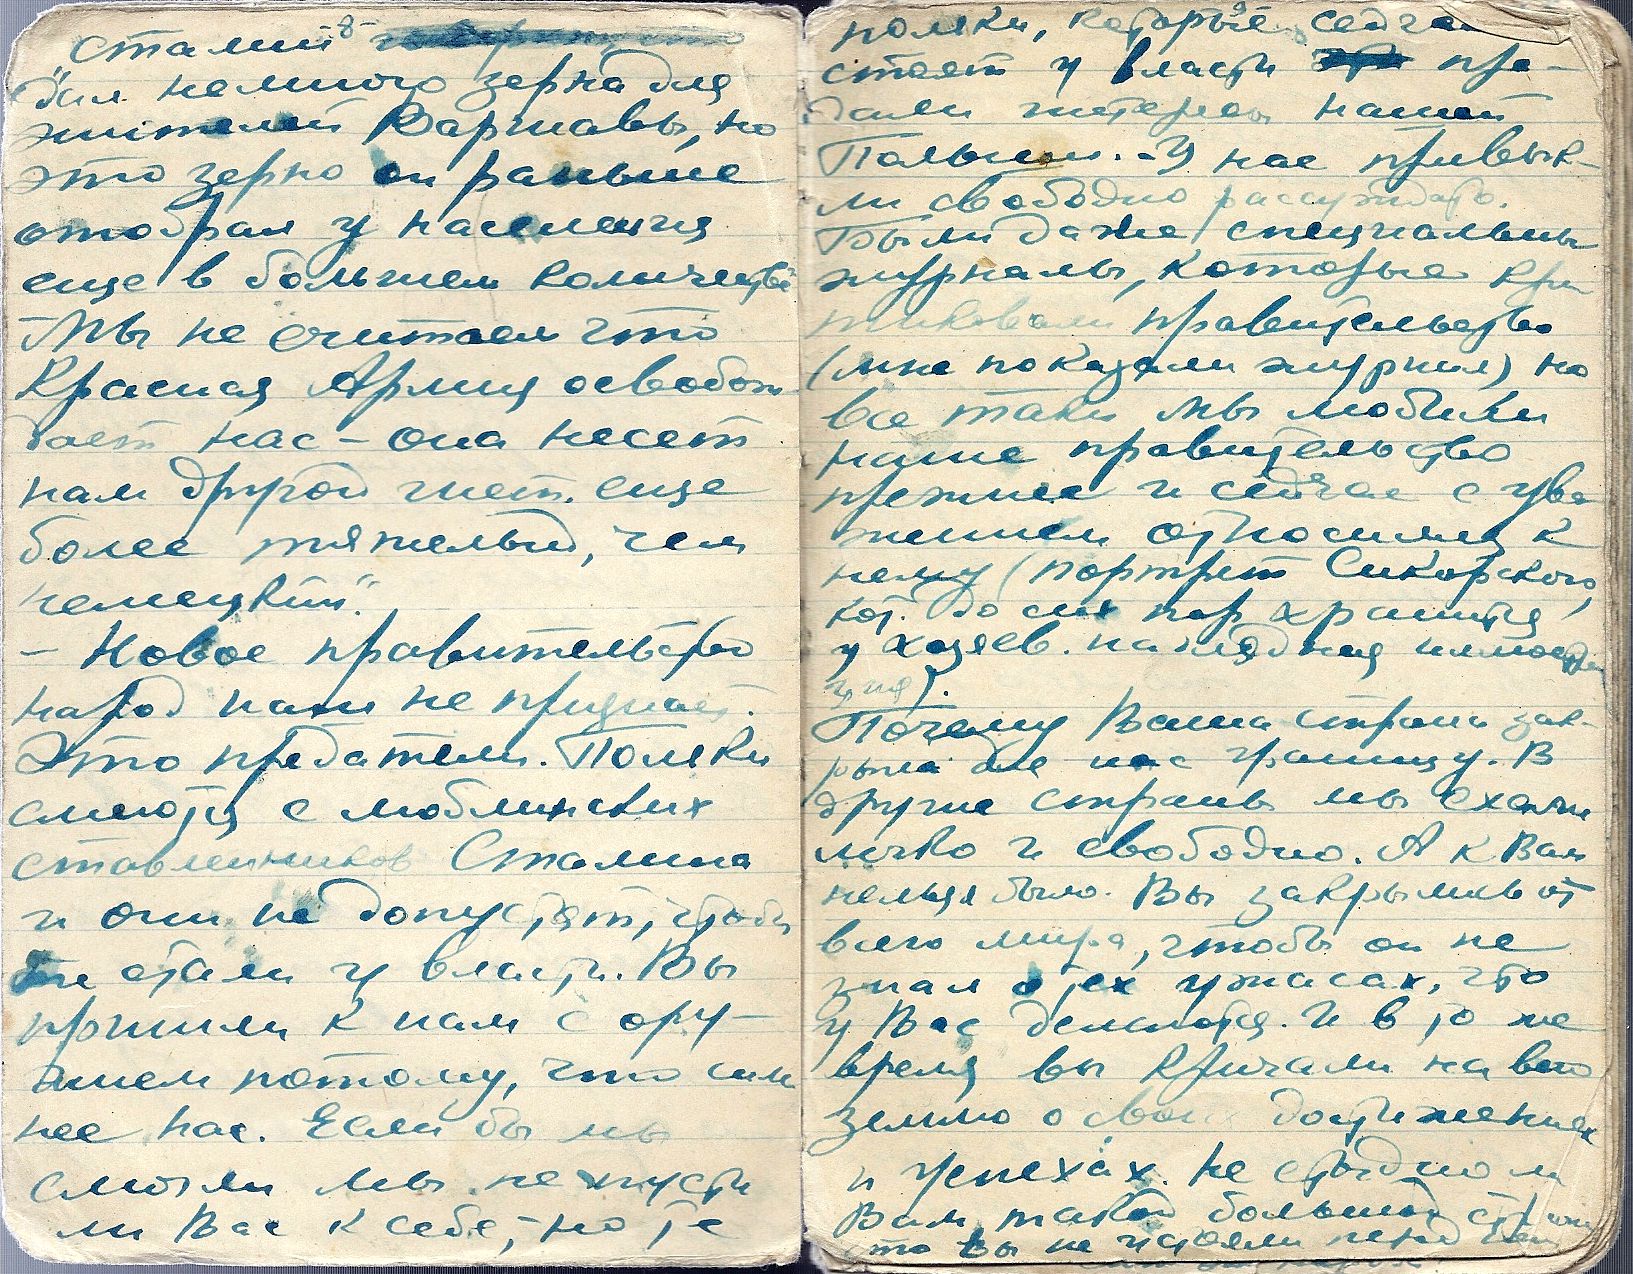 Сталин
дал немного зерна для
жителей Варшавы, но
это зерно он раньше
отобрал у населения
еще в большем количестве
Мы не считаем что
Красная Армия освобож
дает нас – она несет
нам другой гнет. еще
более тяжелый, чем
немецкий".
– Новое правительство
народ наш не признает.
Это предатели. Поляки
смеются с люблинских
ставленников Сталина
и они не допустят, чтобы
те стали у власти. Вы
пришли к нам с ору–
жием потому, что силь
нее нас. Если бы мы
смогли мы не пусти
ли Вас к себе, – но те
поляки, которые сейчас
стоят у власти пре–
дали интересы нашей
Польши. – У нас привык–
ли свободно рассуждать.
Были даже специальны
журналы, которые кри
тиковали правительство
(мне показали журнал) но
все таки мы любили
наше правительство
прежнее и сейчас с ува
жением относимся к
нему (портрет Сикорского,
кот. до сих пор хранится
у хозяев. наглядная
Почему Ваша страна зак–
рыла для нас границу. В
другие страны мы ехали
легко и свободно. А к Вам
нельзя было. Вы закрылись от
всего мира, чтобы он не
знал о тех ужасах, что
у Вас делаются. И в то же
время вы кричали на всю
землю о своих достижениях
и успехах. Не стыдно ли
Вам, такой большой стране
что Вы не устояли перед